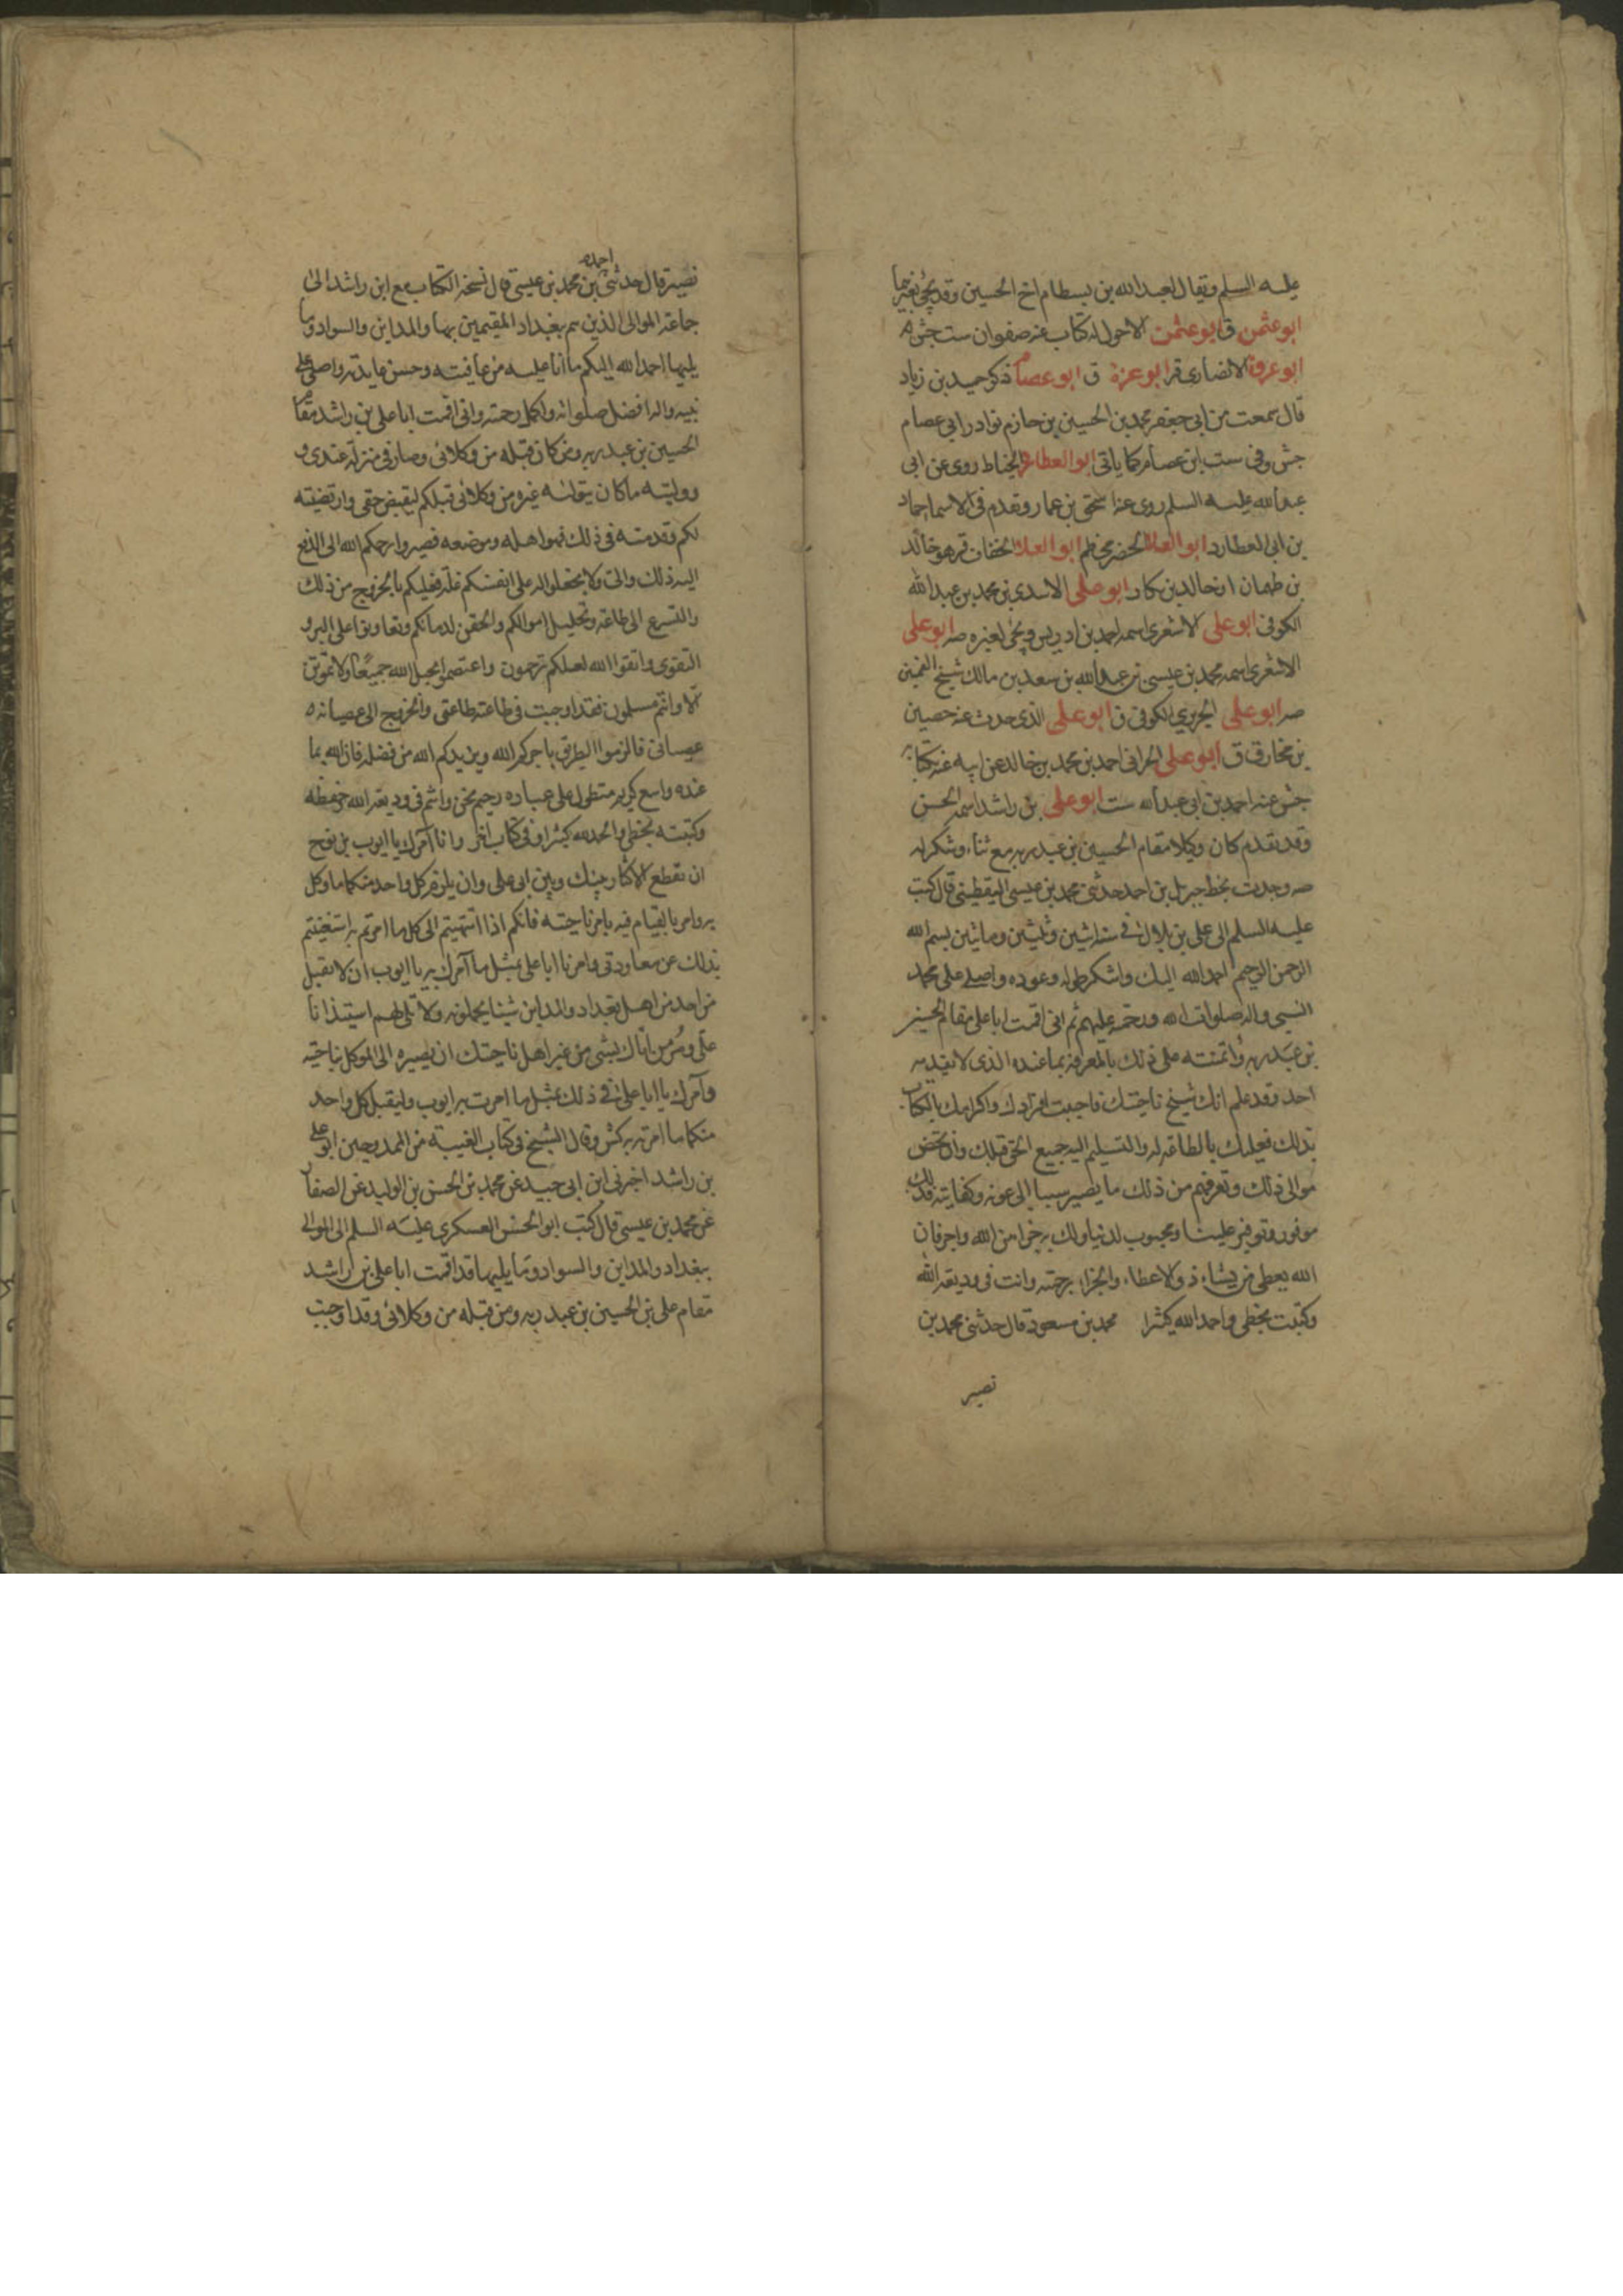 عليه السلم ويقال لعبد الله بن بسطام اخ الحسين وقد يجئ لغيرهما
ابو عثمن ق ابو عثمن الاحول له كتاب عنه صفوان ست جش
ابو عروة الانصاري قر ابو عزة ق ابو عصام ذكر حميد بن زياد
قال سمعت من ابي جعفر محمد بن الحسين بن حازم نوادر ابي عصام
جش وفي ست ابن عصام كما ياتي ابو العطارد الخياط روى عن ابي
عبد الله عليه السلم روى عنه اسحق بن عمار وتقدم في الاسماء حماد
بن ابي العطارد ابو العلا الحضرمي ظم ابو العلا الخفاف قر هو خالد
بن طهمان او خالد بن بكار ابو علي الاسدي بن محمد بن عبد الله
الكوفي ابو علي الاشعري اسمه احمد بن ادريس ويجئ لغيره صه ابو علي
الاشعري اسمه محمد بن عيسى بن عبد الله بن سعد بن مالك شيخ القميين
صه ابو علي الحريري الكوفي ق ابو علي الذي حدث عنه حصين
بن مخارق ق ابو علي الحراني احمد بن محمد بن خالد عن ابيه عنه بكتابه
جش عنه احمد بن ابي عبد الله ست ابو علي بن راشد اسمه الحسن
وقد تقدم كان وكيلا مقام الحسين بن عبد ربه مع ثناء وشكر له
صه وجدت بخط جبريل بن احمد حدثني محمد بن عيسى اليقطيني قال كتب
عليه السلم الى علي بن بلال في سنة اثنين وثلثين ومائتين بسم الله
الرحمن الرحيم احمد الله اليك واشكر طوله وعوده واصلي على محمد
النبي واله صلوات الله ورحمته عليهم ثم اني اقمت ابا علي مقام الحسين
بن عبد ربه وائتمنته على ذلك بالمعرفة بما عنده الذي لا يقدمه
احد وقد علم انك شيخ ناحيتك فاحببت افرادك واكرامك بالكتاب
بذلك فعليك بالطاعة له والتسليم اليه جميع الحق قبلك وان تخص
موالي ذلك وتعرفهم من ذلك ما يصير سببا الى عونه وكفايته فذلك
موفور وتوفير علينا ومحبوب لدينا ولك به جزاء من الله واجر فان
الله يعطي من يشاء ذو الاعطاء والجزاء برحمته وانت في وديعة الله
وكتبت بخطي واحمد الله كثيرا محمد بن مسعود قال حدثني محمد بن
نصير
احمد
نصير قال حدثني بن محمد بن عيسى قال نسخة الكتاب مع ابن راشد الى
جماعة الموالي الذين هم ببغداد المقيمين بها والمداين والسواد وما
يليها احمد الله اليكم ما انا عليه من عافيته وحسن عايدته واصلي على
نبيه واله افضل صلواته واكمل رحمته واني اقمت ابا علي بن راشد مقام
الحسين بن عبد ربه ومن كان قبله من وكلائي وصار في منزلته عندي و
ووليته ما كان يتولاه غيره من وكلائي قبلكم ليقبض حقي وارتضيته
لكم وقدمته في ذلك فهو اهله وموضعه فصيروا رحمكم الله الى الدفع
اليه ذلك والي ولا تجعلوا له على انفسكم علة فعليكم بالخروج من ذلك
والتسرع الى طاعة وتحليل اموالكم والحقن لدمائكم وتعاونوا على البر و
التقوى واتقوا الله لعلكم ترحمون واعتصموا بحبل الله جميعا ولا تموتن
الا وانتم مسلمون فقد اوجبت في طاعته طاعتي والخروج الى عصيانه
عصياني فالزموا الطريق ياجركم الله ويزيدكم الله من فضله فان الله بما
عنده واسع كريم متطول على عباده رحيم نحن وانتم في وديعة الله وحفظه
وكتبته بخطي والحمد لله كثيرا وفي كتاب اخر وانا آمرك يا ايوب بن نوح
ان تقطع الاكثار بينك وبين ابي علي وان يلزم كل واحد منكما ما وكل
به وامر بالقيام فيه بامر ناحيته فانكم اذا انتهيتم الى كل ما امرتم به استغنيتم
بذلك عن معاودتي وامرنا ابا علي بمثل ما آمرك به يا ايوب ان لا تقبل
من احد من اهل بغداد والمداين شيئا يحملونه ولا تلي لهم استيذانا
علي ومر من اتاك بشئ من غير اهل ناحيتك ان يصيره الى الموكل بناحيته
وآمرك يا ابا علي في ذلك بمثل ما امرت به ايوب وليقبل كل واحد
منكما ما امرته به كش وقال الشيخ في كتاب الغيبة من الممدوحين ابو علي
بن راشد اخبرني ابن ابي جيد عن محمد بن الحسن بن الوليد عن الصفار
عن محمد بن عيسى قال كتب ابو الحسن العسكري عليه السلم الى الموالي
ببغداد والمداين والسواد وما يليها قد اقمت ابا علي بن راشد
مقام علي بن الحسين بن عبد ربه ومن قبله من وكلائي وقد اوجبت